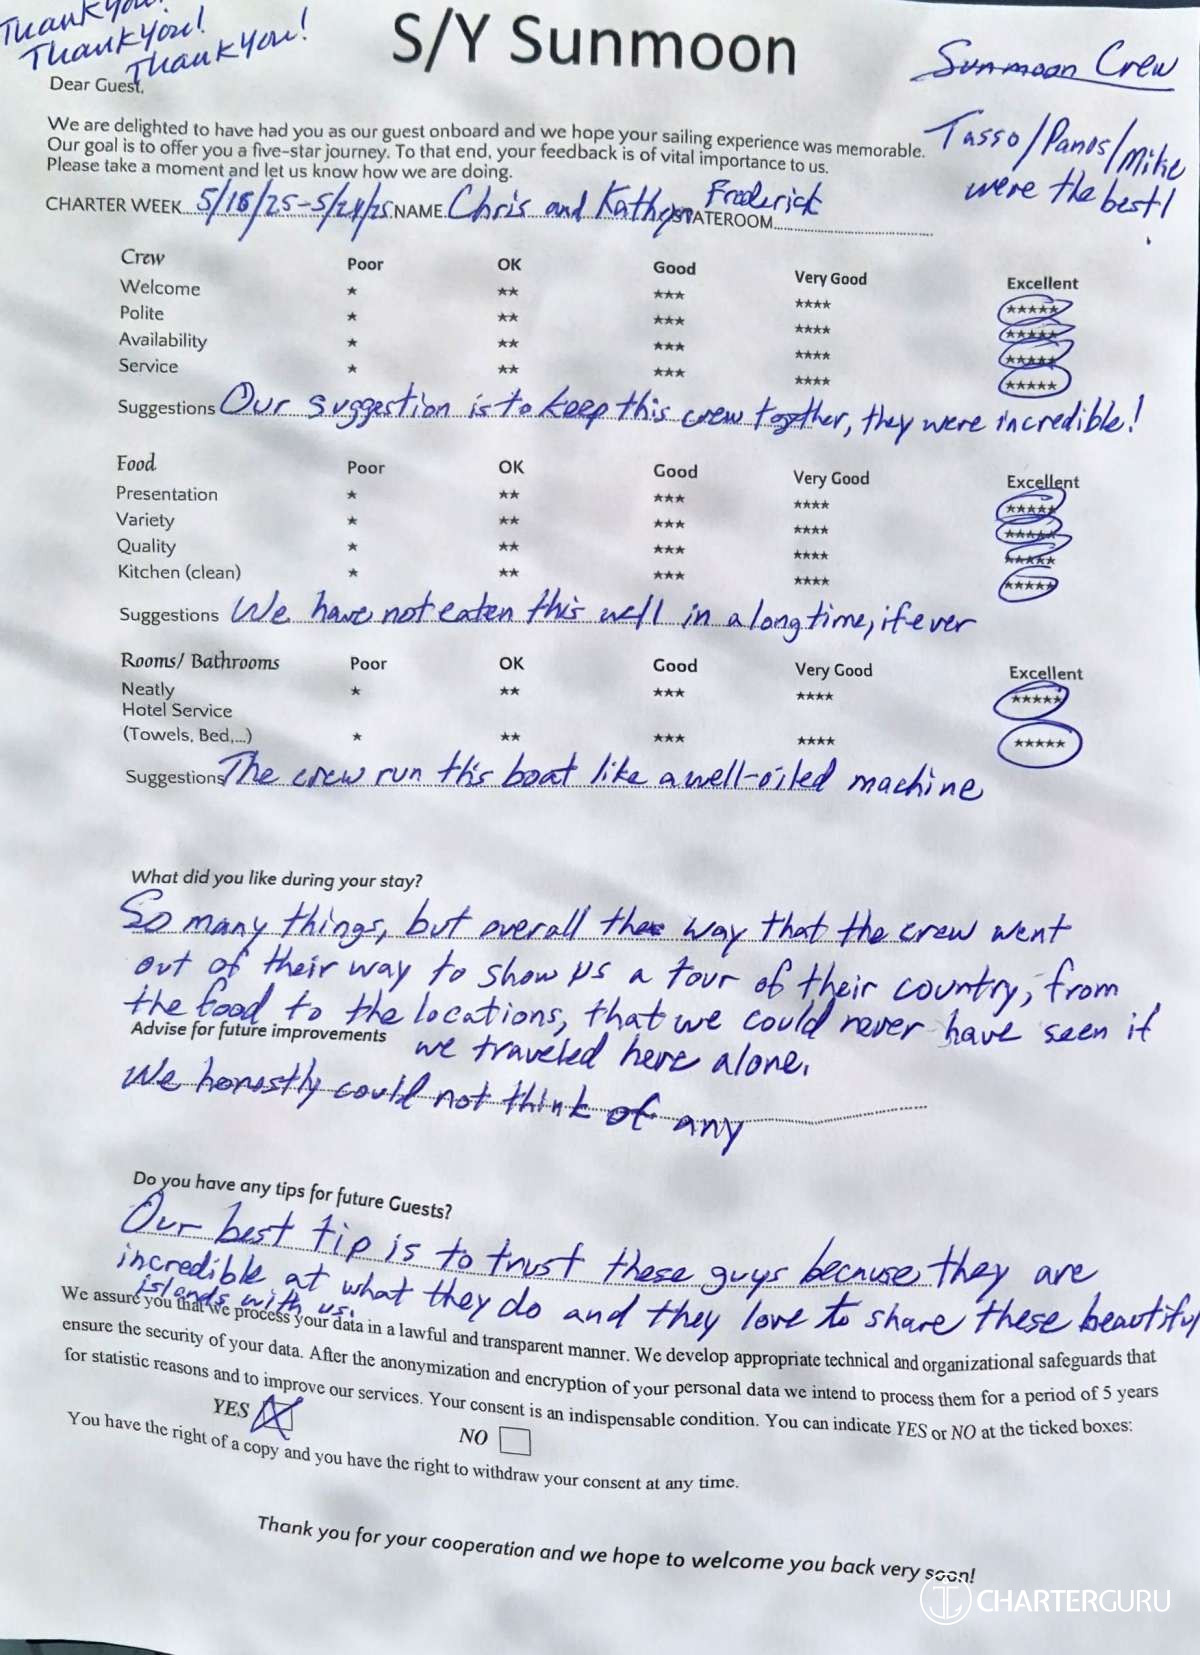 Thank You!
Thank You!
Thank You!
S/Y Sunmoon
Sunmoon Crew
Tasso/Panos/Mike
were the best!
Dear Guest,
We are delighted to have had you as our guest onboard and we hope your sailing experience was memorable.
Our goal is to offer you a five-star journey. To that end, your feedback is of vital importance to us.
Please take a moment and let us know how we are doing.
CHARTER WEEK 5/18/25-5/24/25 NAME Chris and Kathryn Frederick STATEROOM
Crew Poor OK Good Very Good Excellent
Welcome ★ ★★ ★★★ ★★★★ ★★★★★
Polite ★ ★★ ★★★ ★★★★ ★★★★★
Availability ★ ★★ ★★★ ★★★★ ★★★★★
Service ★ ★★ ★★★ ★★★★ ★★★★★
Suggestions Our suggestion is to keep this crew together, they were incredible!
Food Poor OK Good Very Good Excellent
Presentation ★ ★★ ★★★ ★★★★ ★★★★★
Variety ★ ★★ ★★★ ★★★★ ★★★★★
Quality ★ ★★ ★★★ ★★★★ ★★★★★
Kitchen (clean) ★ ★★ ★★★ ★★★★ ★★★★★
Suggestions We have not eaten this well in a long time, if ever
Rooms/ Bathrooms Poor OK Good Very Good Excellent
Neatly ★ ★★ ★★★ ★★★★ ★★★★★
Hotel Service
(Towels, Bed,...) ★ ★★ ★★★ ★★★★ ★★★★★
Suggestions The crew run this boat like a well-oiled machine
What did you like during your stay?
So many things, but overall the way that the crew went
out of their way to show us a tour of their country, from
the food to the locations, that we could never have seen if
we traveled here alone.
Advise for future improvements
We honestly could not think of any
Do you have any tips for future Guests?
Our best tip is to trust these guys because they are
incredible at what they do and they love to share these beautiful
islands with us.
We assure you that we process your data in a lawful and transparent manner. We develop appropriate technical and organizational safeguards that
ensure the security of your data. After the anonymization and encryption of your personal data we intend to process them for a period of 5 years
for statistic reasons and to improve our services. Your consent is an indispensable condition. You can indicate YES or NO at the ticked boxes:
YES NO
You have the right of a copy and you have the right to withdraw your consent at any time.
Thank you for your cooperation and we hope to welcome you back very soon!
CHARTERGURU